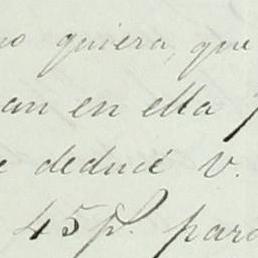 no quiera, que
an en ella
e deducé v.
45 p. para